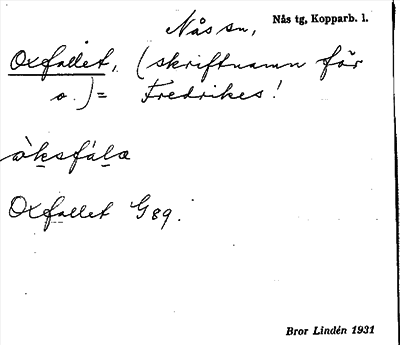 Nås sn, Nås tg, Kopparb. l.
Oxfallet, (skriftnamn för
o.) = Fredrikes!
òksfála
Oxfallet G89.
Bror Lindén 1931